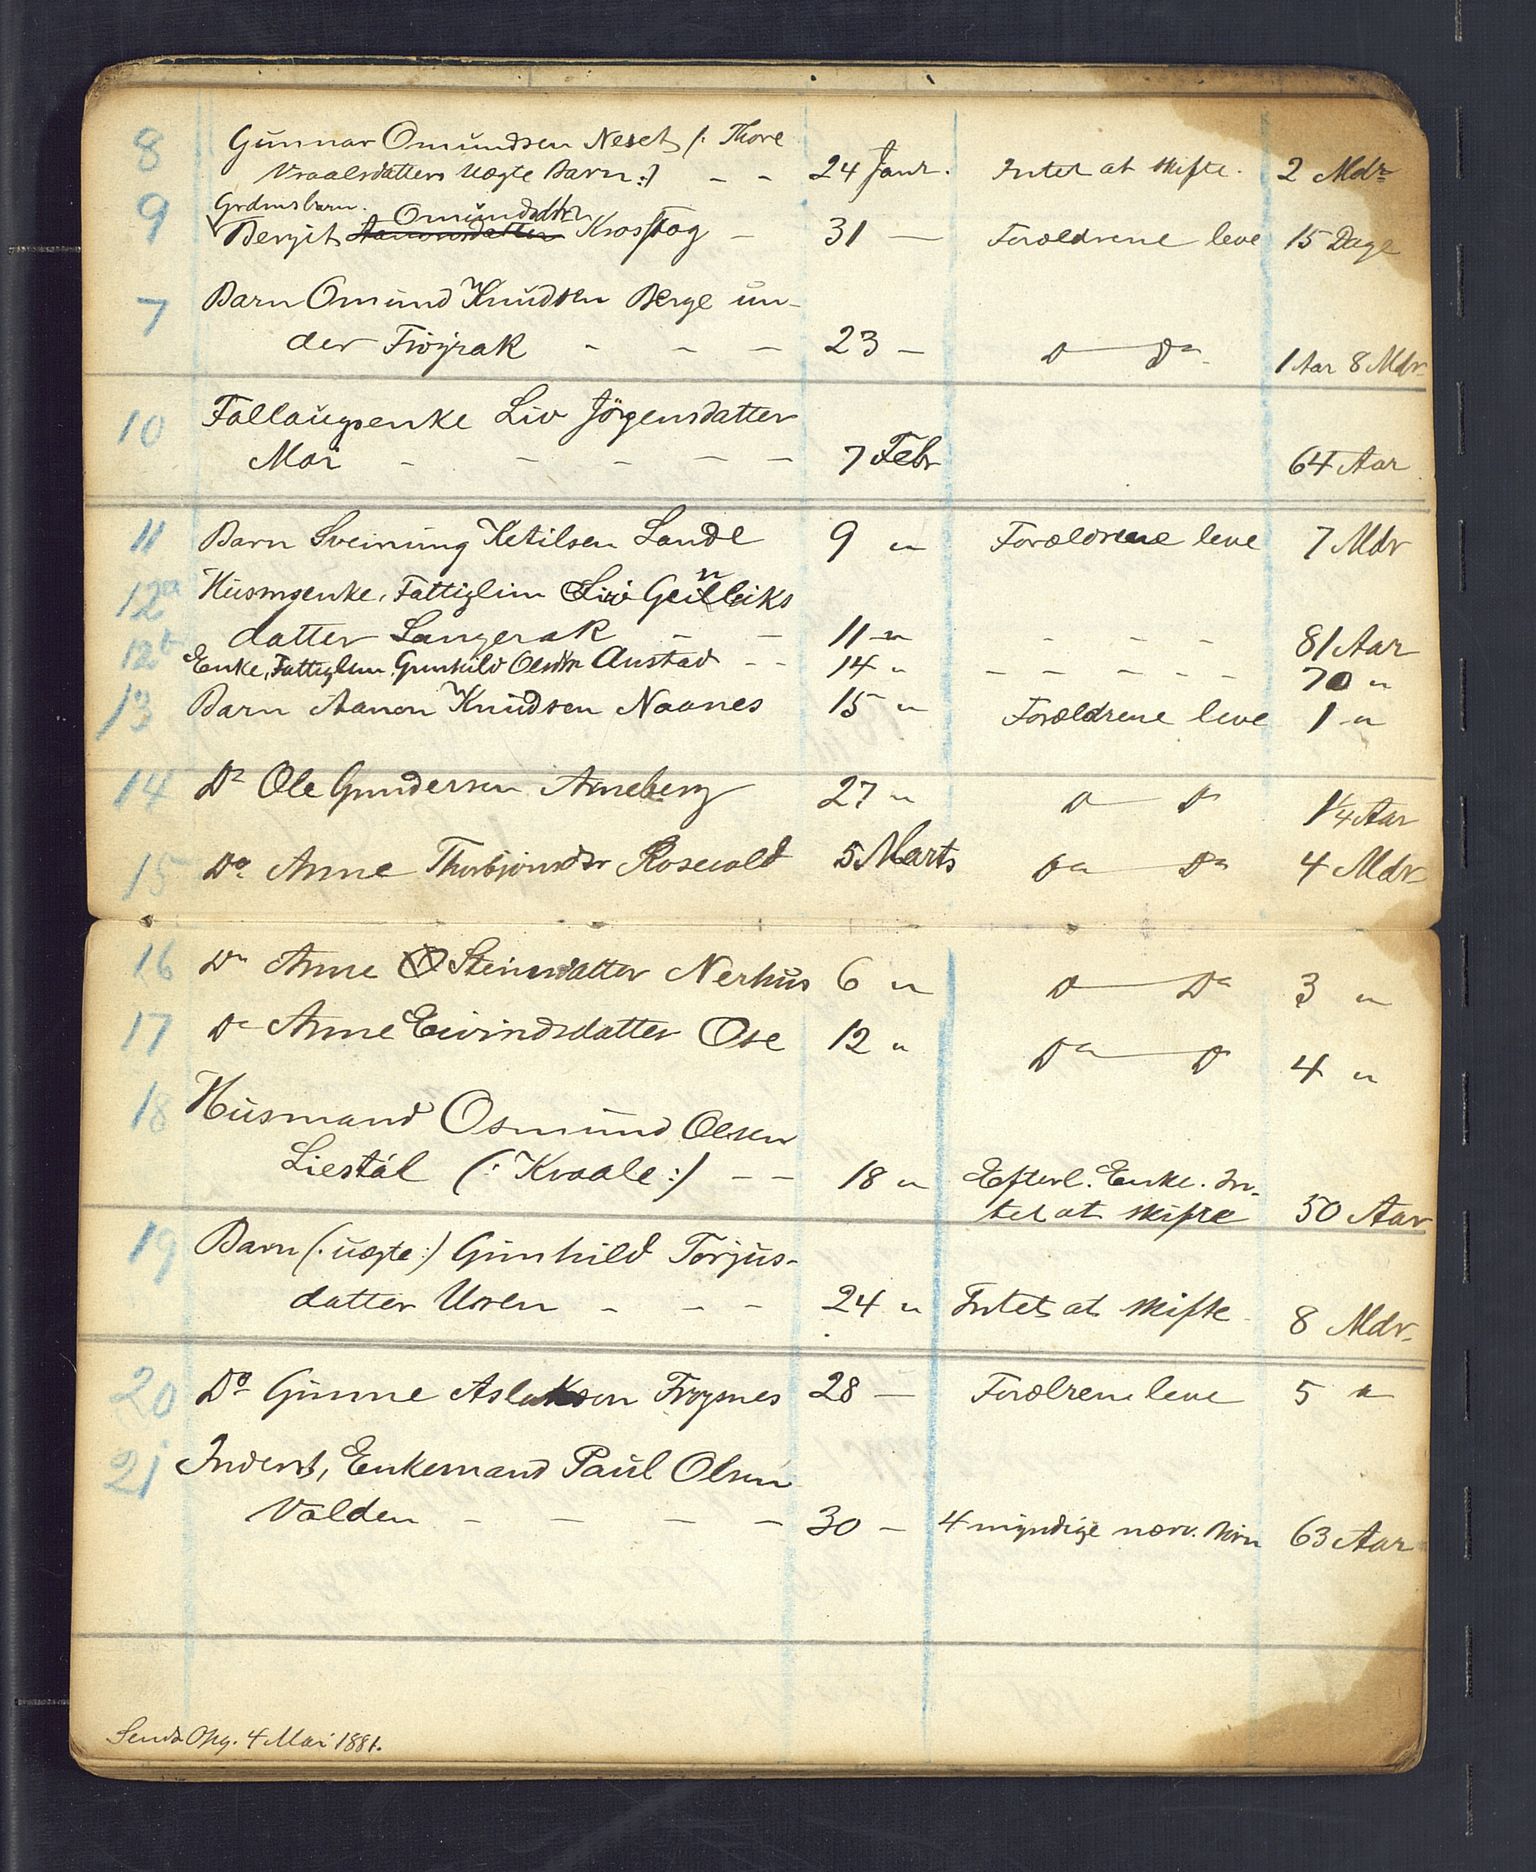 8 Gunnar Omundsen Neset (: Thore
Vraalsdatters Uægte Barn :) - - 24 Janr. Intet at skifte. 2 Mdr
Grdmsbarn. Omundsdttr
9 Bergit Aanonsdatter Krosstog - 31 — Forældrene leve 15 Dage
7 Barn Omund Knudsen Berge un-
der Frøyrak - - - 23 — Do — Do 1 Aar 8 Mdr
10 Fattaugsenke Liv Jörgensdatter
Moi - - - - - 7 Febr 64 Aar
11 Barn Sveinung Ketilsen Lande 9 " Forældrene leve 7 Mdr
12a Husmsenke, Fattiglim Liv Gunleiks
datter Langerak - - 11 " - - - - 81 Aar
12b Enke, Fattiglem Gunhild Olsdtr Austad - - 14 " - - - - - - 70 "
13 Barn Aanon Knudsen Naanes 15 " Forældrene leve 1 "
14 Do Ole Gundersen Arneberg 27 " Do — Do 1 1/4 Aar
15 Do Anne Thorbjørnsdtr Rosevold 5 Marts Do Do 4 Mdr
16 Do Anne Steinsdatter Nerhus 6 " Do — Do 3 "
17 Do Anne Eivindsdatter Ose 12 " Do — Do 4 "
18 Husmand Osmund Olsen
Liestøl (: Kvaale :) - - 18 " Efterl. Enke. In-
tet at skifte 50 Aar
19 Barn (: uægte :) Gunhild Torjus-
datter Uren - - - 24 " Intet at skifte 8 Mdr.
20 Do Gunne Aslaksen Frøysnes 28 — Forælrene leve 5 "
21 Inderst, Enkemand Paul Olsen
Valden - - - - 30 — 4 myndige nærv. Børn 63 Aar
Sendt Opg. 4 Mai 1881.